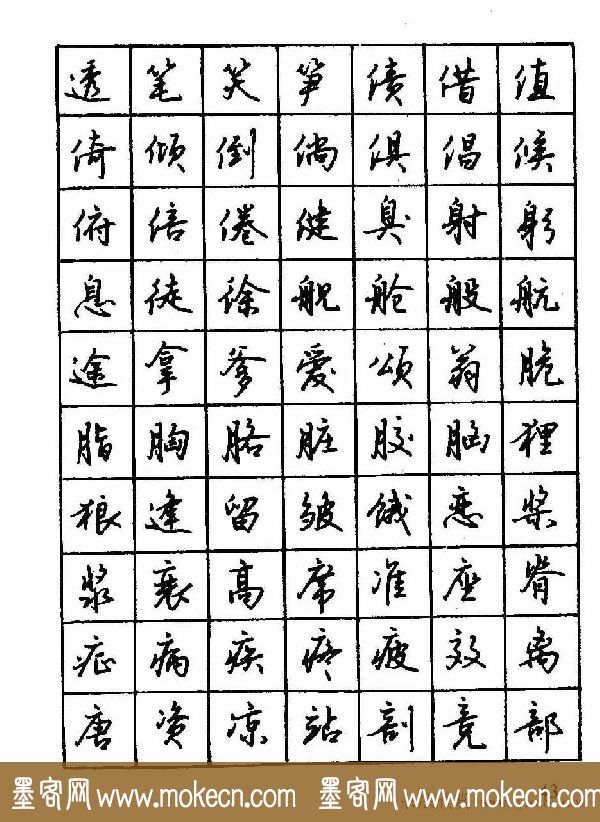 透笔笑笋债借值
倚倾倒倘俱倡候
俯倍倦健臭射躬
息徒徐舰舱般航
途拿爹爱颂翁脆
脂胸胳脏胶脑狸
狼逢留皱饿恋桨
浆衰高席准座脊
症病疾疼疲效离
唐资凉站剖竞部
墨客网 www.mokecn.com 墨客网 www.mokecn.com